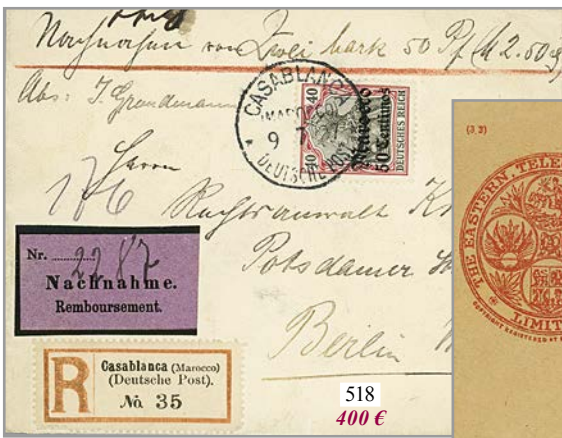 Nachnahme von Zwei Mark 50 Pf (M 2.50
Abs: J. Grundmann
CASABLANCA
(MAROCCO)
9 7
DEUTSCHE POST
40 40
40
Marocco
50 Centimos
DEUTSCHES REICH
Herrn
176
Rechtsanwalt
Potsdamer
Berlin W
Nr. 2287
Nachnahme.
Remboursement.
R
Casablanca (Marocco)
(Deutsche Post).
No 35
518
400 €
(3,2)
THE EASTERN, TELE
LIMIT
COPYRIGHT REGISTERED AT